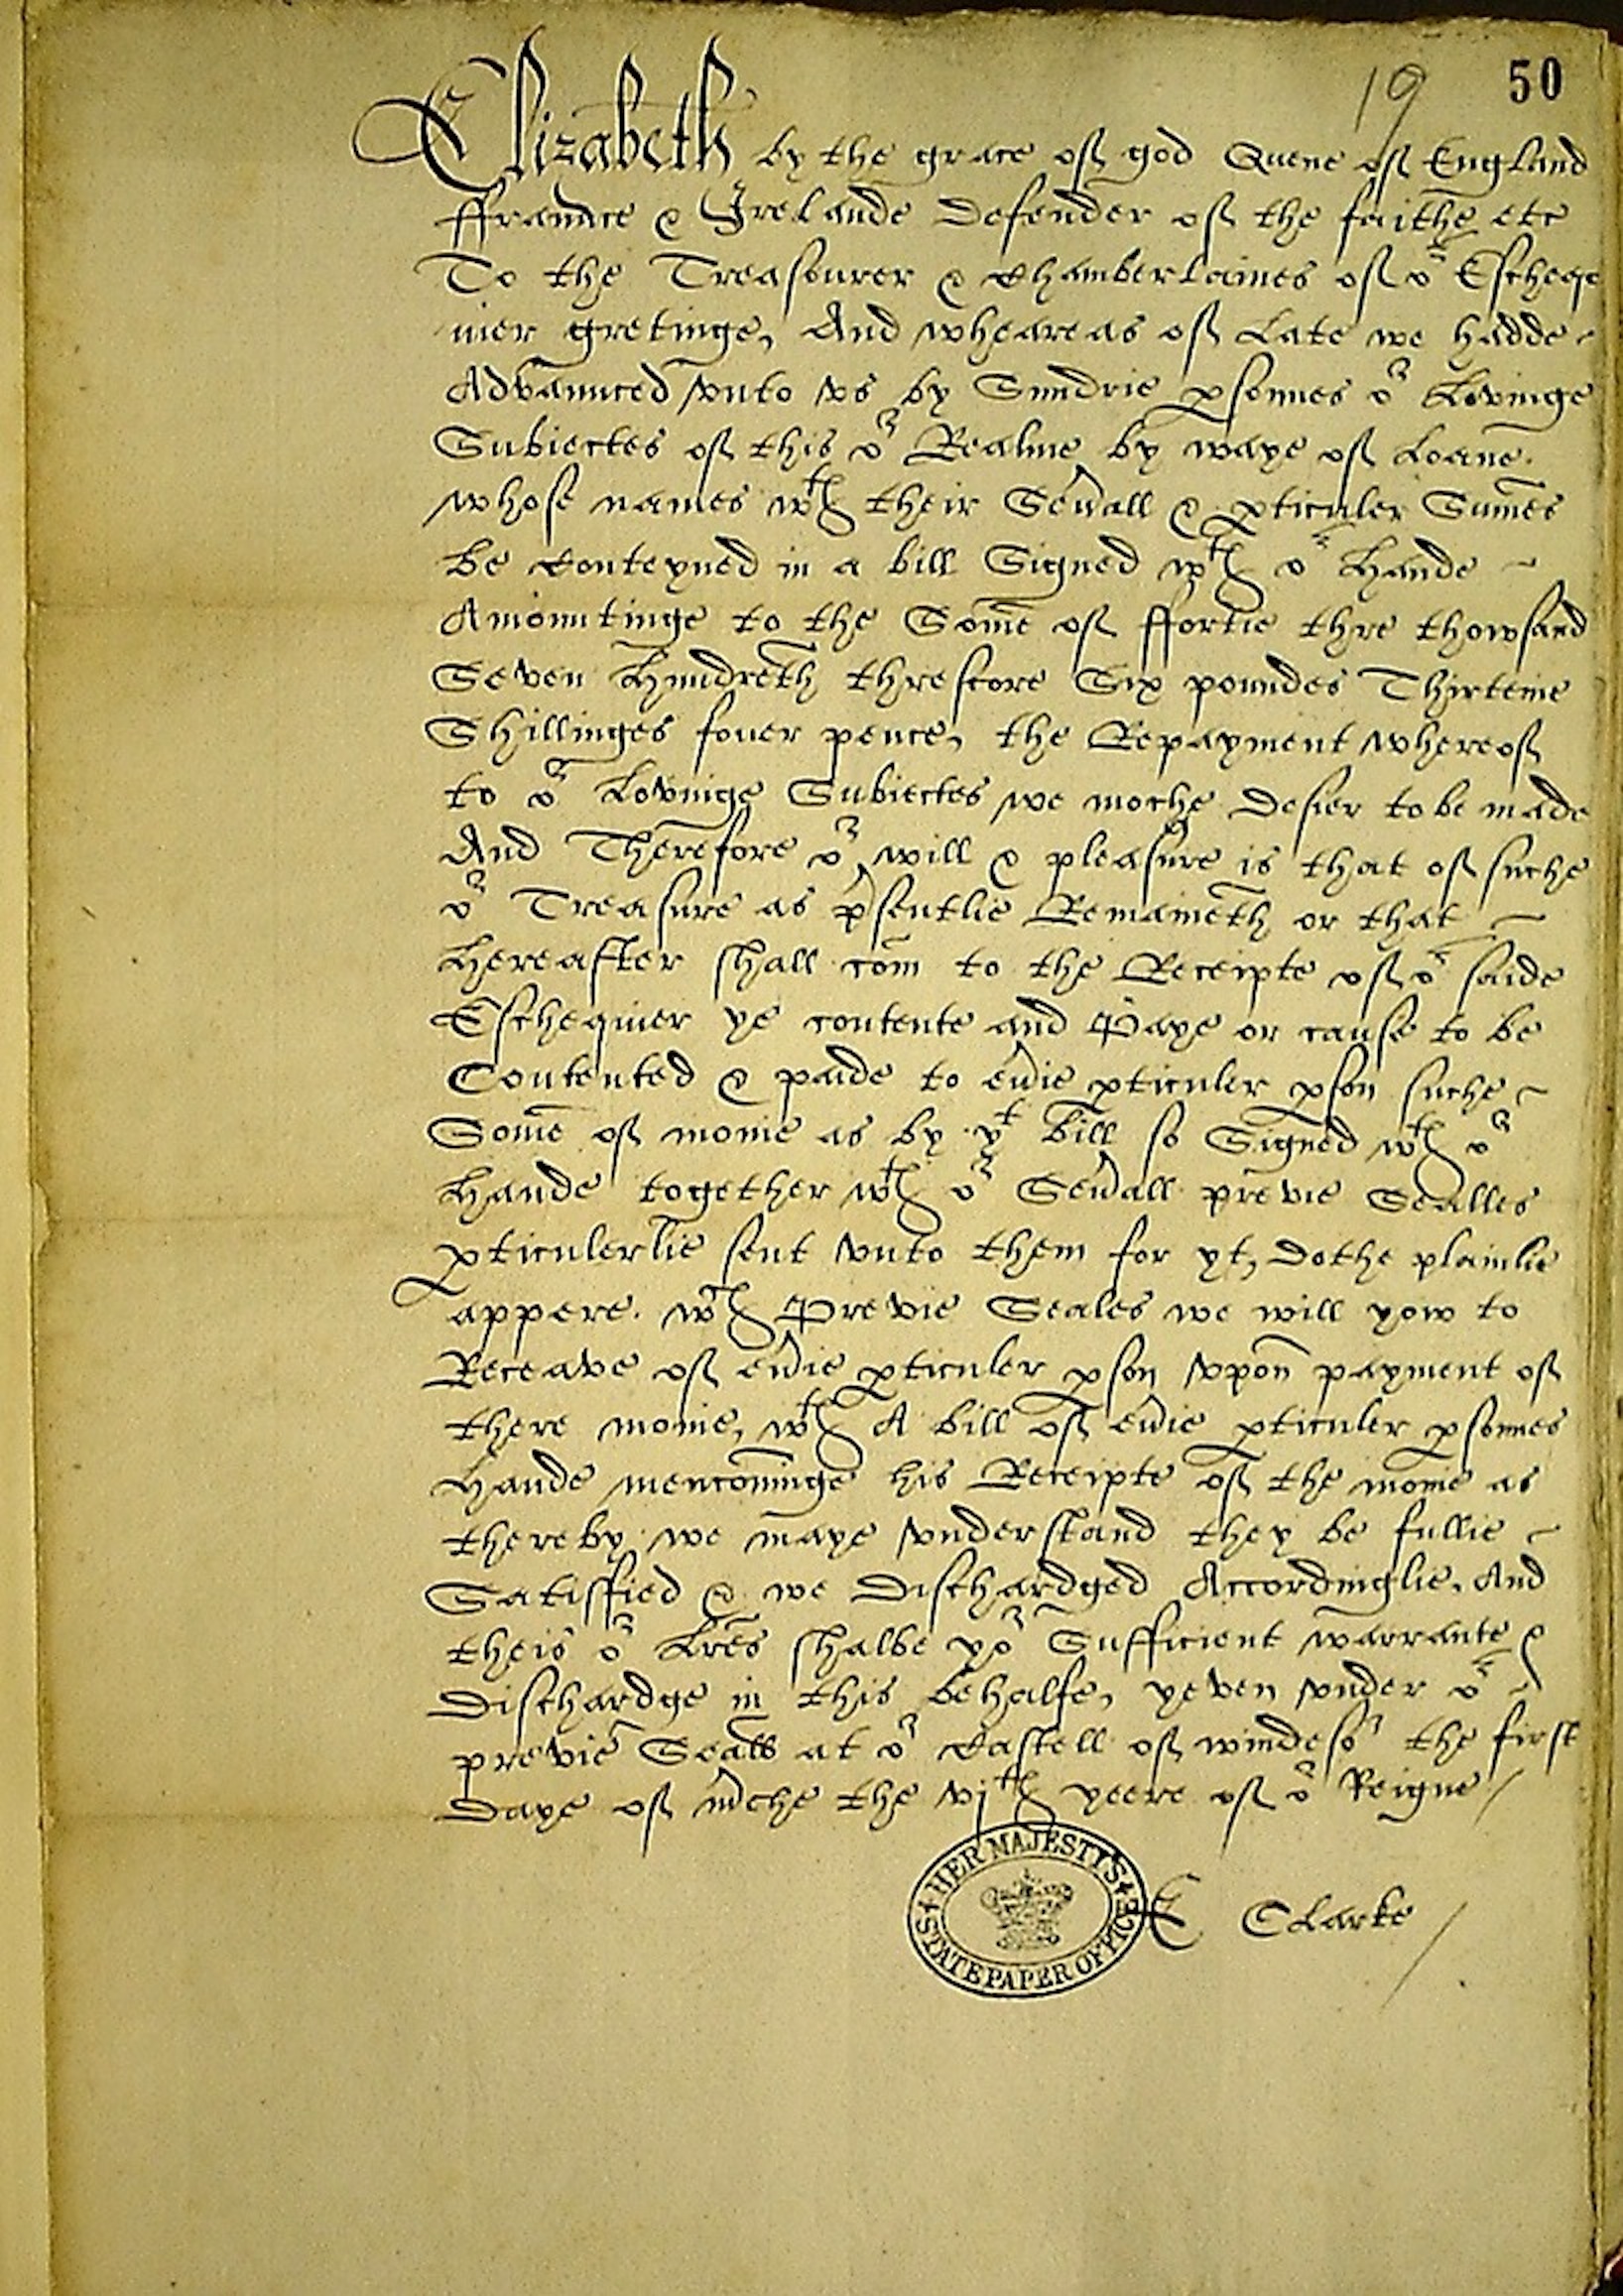 19 50
Elizabeth by the grace of god Quene of England
ffraunce & Irelande Defender of the faithe etc
To the Treasourer & Chamberlaines of or Escheq
uier gretinge, And wheareas of late we hadde
Advaunced vnto vs by Sundrie psonnes or Lovinge
Subiectes of this or Realme by waye of Loane.
whose names wth their Seuall & pticuler Sumes
be Conteyned in a bill Signed wth or Hande
Amountinge to the Some of ffortie thre thowsand
Seven Hundreth threscore Six poundes Thirteine
Shillinges fouer pence, the Repayment whereof
to or Lovinge Subiectes we moche Desier to be made
And Therefore or will & pleasure is that of suche
or Treasure as psentlie Remaineth or that
Hereafter shall com to the Receipte of or saide
Eschequier ye contente and Paye or cause to be
Contented & paide to euie pticuler pson suche
Some of monie as by yt bill so Signed wth or
Hande together wth or Seuall previe Sealles
pticulerlie sent vnto them for yt, Dothe plainlie
appere. wch Previe Seales we will yow to
Receave of euie pticuler pson vpon payment of
there monie, wth A bill of euie pticuler psonnes
Hande menconinge his Receipte of the monie as
thereby we maye vnderstand they be fullie
Satisffied & we Dischardged Accordinglie. And
theis or Lres shalbe yor Sufficient warrante &
Dischardge in this behalfe, yeven vnder or
previe Seall at or Castell of windesor the first
Daye of mche the vjth yeere of or Reigne /
HER MAJESTY'S
STATE PAPER OFFICE
E Clarke /